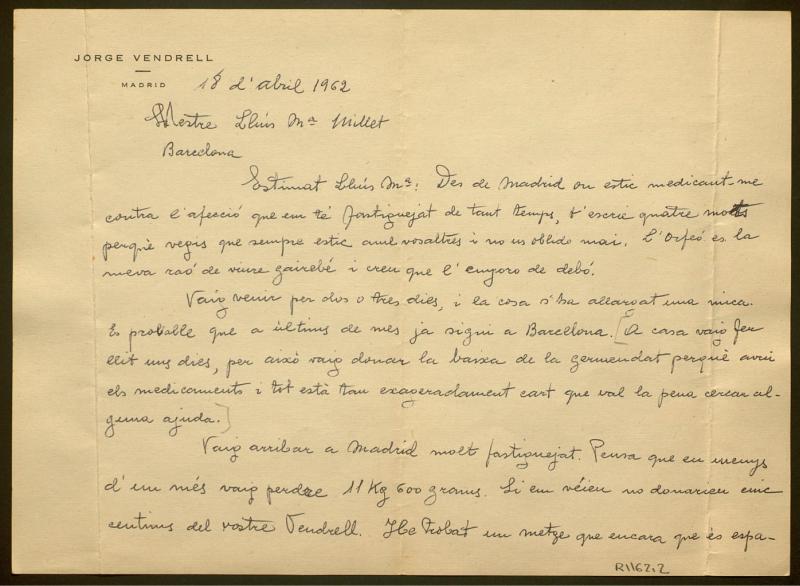 JORGE VENDRELL
MADRID
18 d'abril 1962
Mestre Lluís Mª Millet
Barcelona
Estimat Lluís Mª: Des de Madrid on estic medicant-me
contra l'afecció que em té fastiguejat de tant temps, t'escric quatre mots
perquè vegis que sempre estic amb vosaltres i no us oblido mai. L'Orfeó és la
meva raó de viure gairebé i creu que l'enyoro de debó.
Vaig venir per dos o tres dies, i la cosa s'ha allargat una mica.
Es probable que a últims de mes ja sigui a Barcelona. [A casa vaig fer
llit uns dies, per això vaig donar la baixa de la germendat perquè avui
els medicaments i tot està tan exageradament cart que val la pena cercar al-
guna ajuda.]
Vaig arribar a Madrid molt fastiguejat. Pensa que en menys
d'un més vaig perdre 11 Kg 600 grams. Si em véieu no donarieu cinc
centims del vostre Vendrell. He trobat un metge que encara que és espa-
R1162,2